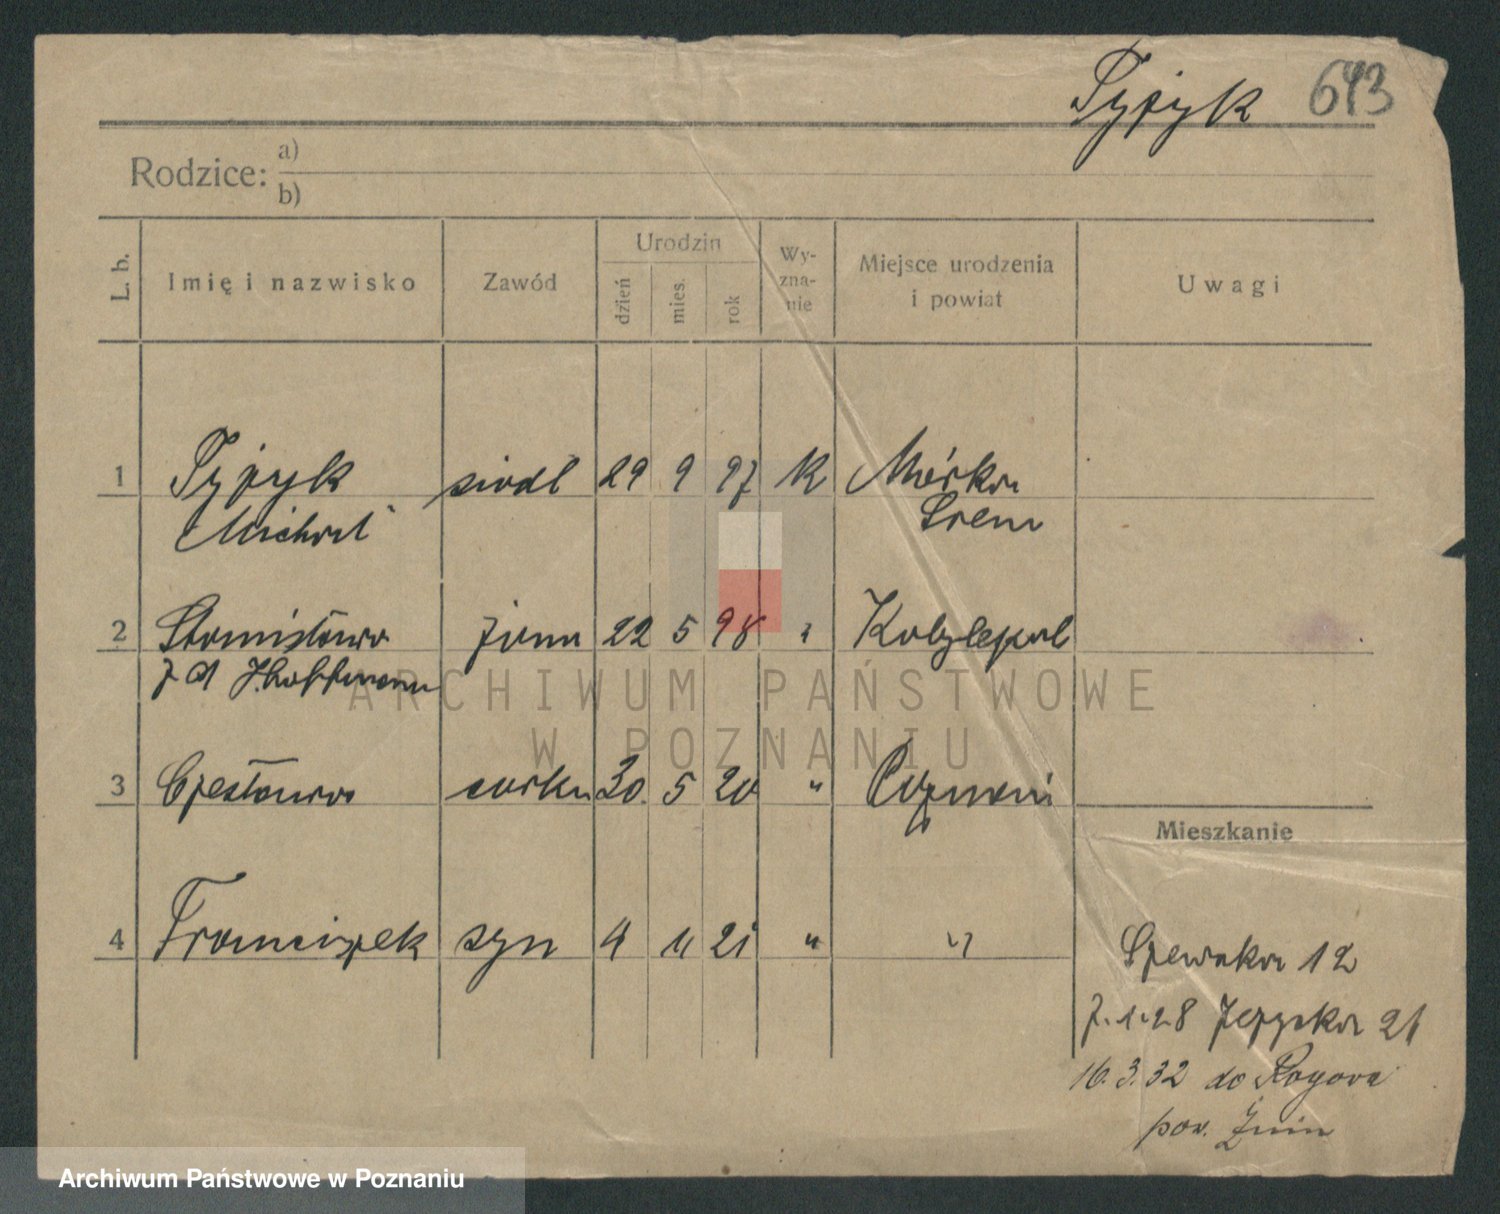 Tyżyk 643
Rodzice: a)
b)
L. b. Imię i nazwisko Zawód Urodzin dzień mies. rok Wy-zna-nie Miejsce urodzenia i powiat Uwagi
1 siodl 29 9 97 k Mórka
Michał Srem
2 Stanisława żona 22 5 98 " Kobylepol
z d Hoffmann
ARCHIWUM PAŃSTWOWE
W POZNANIU
3 Czesława corka 30. 5 20 " Poznań
Mieszkanie
4 Franciszek syn 4 11 21 " "
Szewska 12
7.1.28 Jeżycka 21
16.3.32 do Rogowa
pow. Żnin
Archiwum Państwowe w Poznaniu